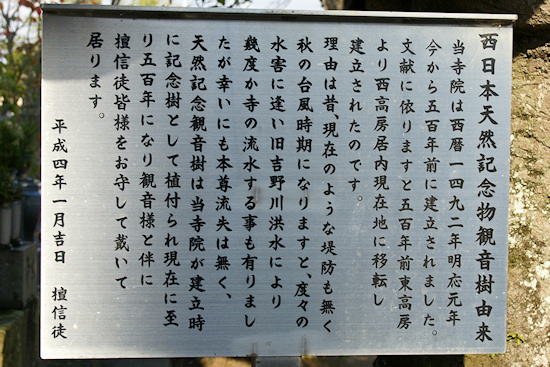 西日本天然記念物観音樹由来
当寺院は西暦一四九二年明応元年
今から五百年前に建立されました。
文献に依りますと五百年前東高房
より西高房居内現在地に移転し
建立されたのです。
理由は昔、現在のような堤防も無く
秋の台風時期になりますと、度々の
水害に逢い旧吉野川洪水により
幾度か寺の流水する事も有りまし
たが幸いにも本尊流失は無く、
天然記念観音樹は当寺院が建立時
に記念樹として植付られ現在に至
り五百年になり観音様と伴に
檀信徒皆様をお守して戴いて
居ります。
平成四年一月吉日 檀信徒